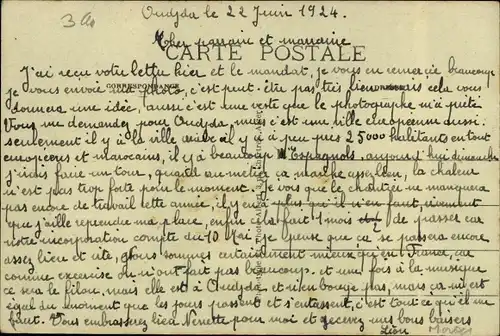 3a
Oudjda le 22 Juin 1924.
Cher parrain et marraine
CARTE POSTALE
CORRESPONDANCE
J'ai reçu votre lettre hier et le mandat, je vous en remercie beaucoup
je vous envoie ma photo, c'est peut-être pas très bien mais cela vous
donnera une idée, aussi c'est une veste que le photographe m'a prêté
Vous me demandez pour Oudjda, mais c'est une ville européenne aussi.
seulement il y a la ville arabe il y a à peu près 25000 habitants en tout
européens et marocains, il y a beaucoup d'Espagnols. aujourd'hui dimanche
j'irais faire un tour, quand au métier ça marche assez bien, la chaleur
n'est pas trop forte pour le moment. Je vois que le chantier ne manquera
pas encore de travail cette année, il y en a plus qu'il n'en faut, vivement
que j'aille reprendre ma place, enfin c'est fait 1 mois de passer car
notre incorporation compte du 10 Mai, je pense que ça se passera encore
assez bien et vite, nous sommes certainement mieux qu'en France, car
comme exercise on n'en fait pas beaucoup. et une fois à la musique
ce sera le filon, mais elle est à Oudjda et n'en bouge pas, mais ça m'est
égal du moment que les jours passent et s'entassent, c'est tout ce qu'il me
faut. Vous embrasserez bien Nenette pour moi et recevez mes bons baisers
Léon